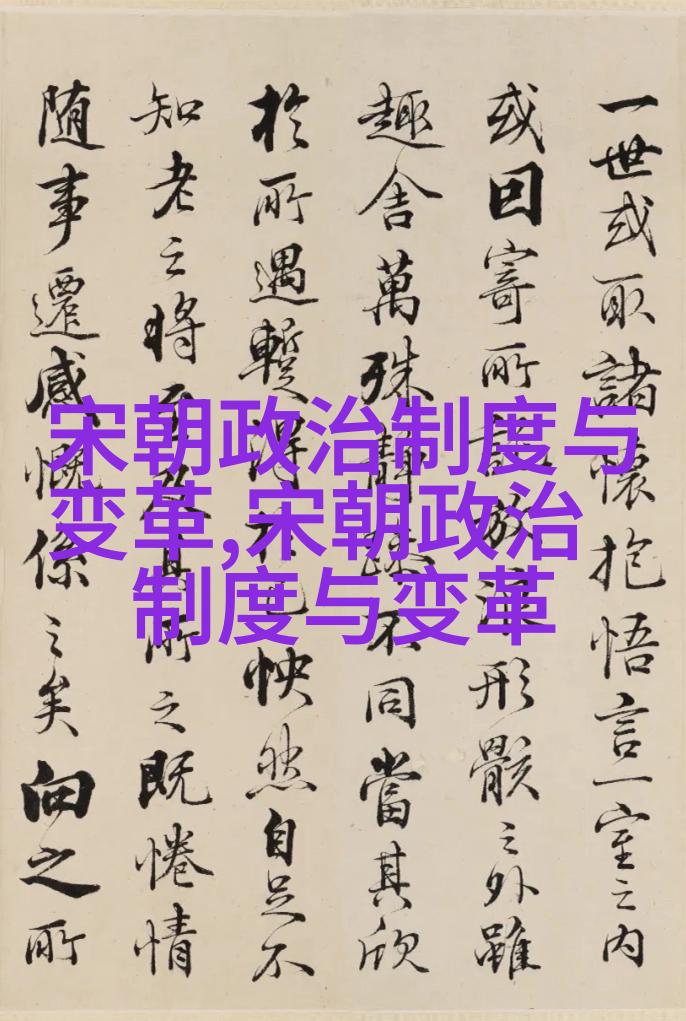 一世或取諸懷抱悟言一室之內
或因寄所託放浪形骸之外雖
趣舍萬殊靜躁不同當其欣
於所遇暫得於己怏然自足不
知老之將至及其所之既惓情
随事遷感慨係之矣向之所
宋朝政治制度与
变革,宋朝政治
制度与变革